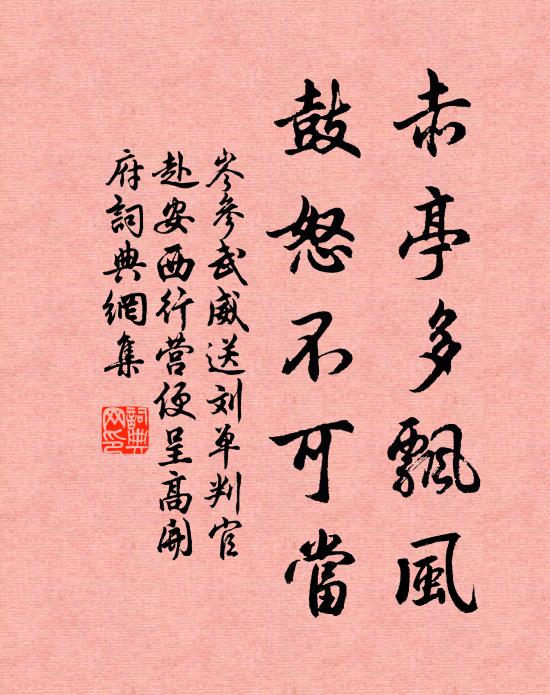 赤亭多飄風
鼓怒不可當
岑參武威送刘单判官
赴安西行營便呈高開
府詞典網集
詞典网印